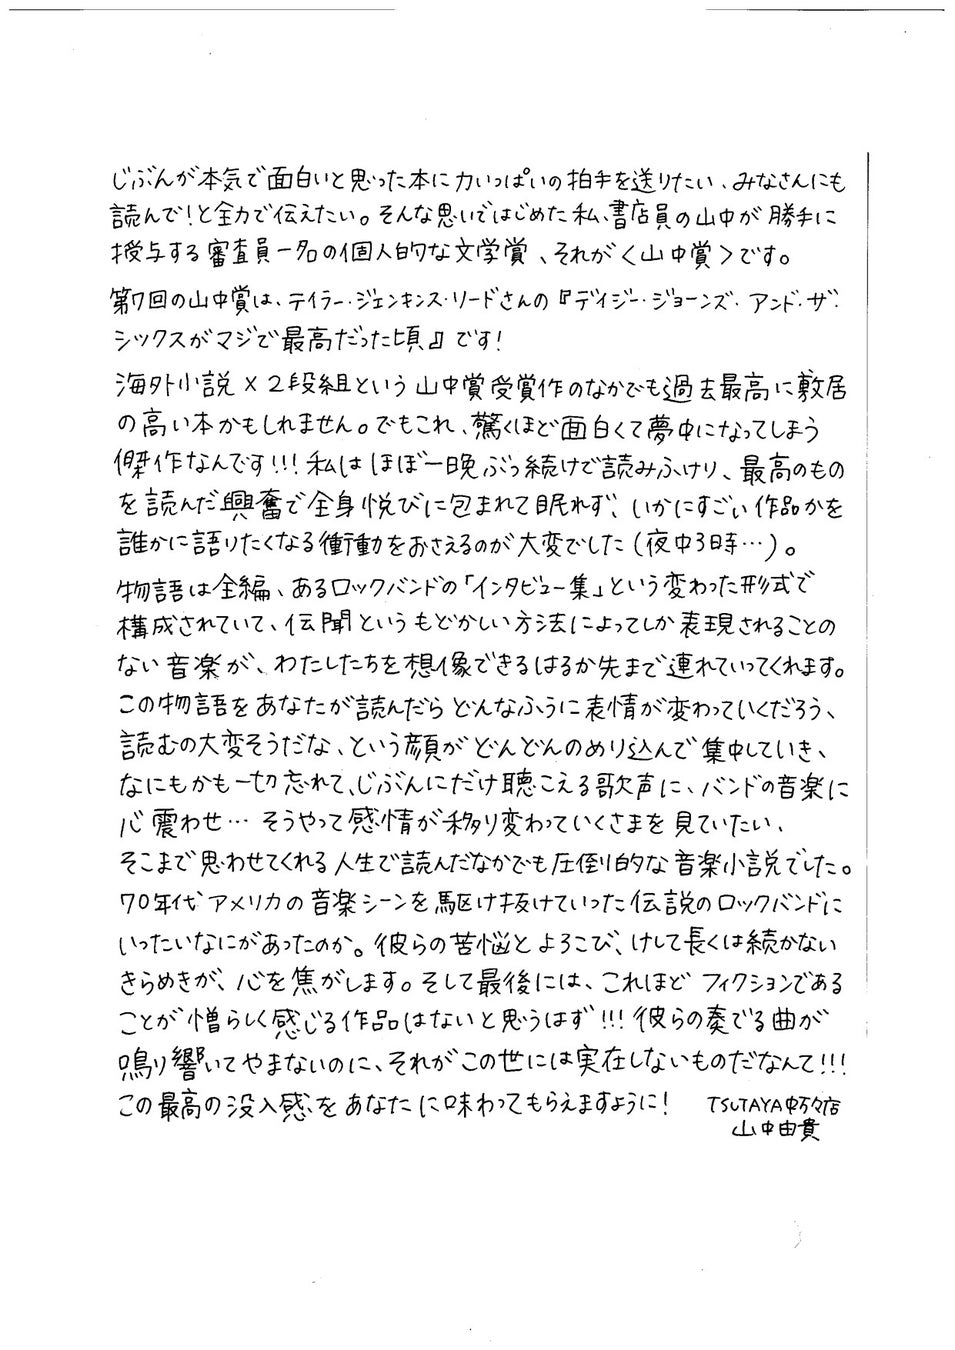 じぶんが本気で面白いと思った本に力いっぱいの拍手を送りたい、みなさんにも
読んで!と全力で伝えたい。そんな思いではじめた私、書店員の山中が勝手に
授与する審査員一名の個人的な文学賞、それが〈山中賞〉です。
第7回の山中賞は、テイラー・ジェンキンス・リードさんの『デイジー・ジョーンズ・アンド・ザ・
シックスがマジで最高だった頃』です!
海外小説×2段組という山中賞受賞作のなかでも過去最高に敷居
の高い本かもしれません。でもこれ、驚くほど面白くて夢中になってしまう
傑作なんです!!!私はほぼ一晩ぶっ続けで読みふけり、最高のもの
を読んだ興奮で全身悦びに包まれて眠れず、いかにすごい作品かを
誰かに語りたくなる衝動をおさえるのが大変でした(夜中3時…)。
物語は全編、あるロックバンドの「インタビュー集」という変わった形式で
構成されていて、伝聞というもどかしい方法によってしか表現されることの
ない音楽が、わたしたちを想像できるはるか先まで連れていってくれます。
この物語をあなたが読んだらどんなふうに表情が変わっていくだろう、
読むの大変そうだな、という顔がどんどんのめり込んで集中していき、
なにもかも一切忘れて、じぶんにだけ聴こえる歌声に、バンドの音楽に
心震わせ…そうやって感情が移り変わっていくさまを見ていたい、
そこまで思わせてくれる人生で読んだなかでも圧倒的な音楽小説でした。
70年代アメリカの音楽シーンを駆け抜けていった伝説のロックバンドに
いったいなにがあったのか。彼らの苦悩とよろこび、けして長くは続かない
きらめきが、心を焦がします。そして最後には、これほどフィクションである
ことが憎らしく感じる作品はないと思うはず!!!彼らの奏でる曲が
鳴り響いてやまないのに、それがこの世には実在しないものだなんて!!!
この最高の没入感をあなたに味わってもらえますように!
TSUTAYA中万々店
山中由貴